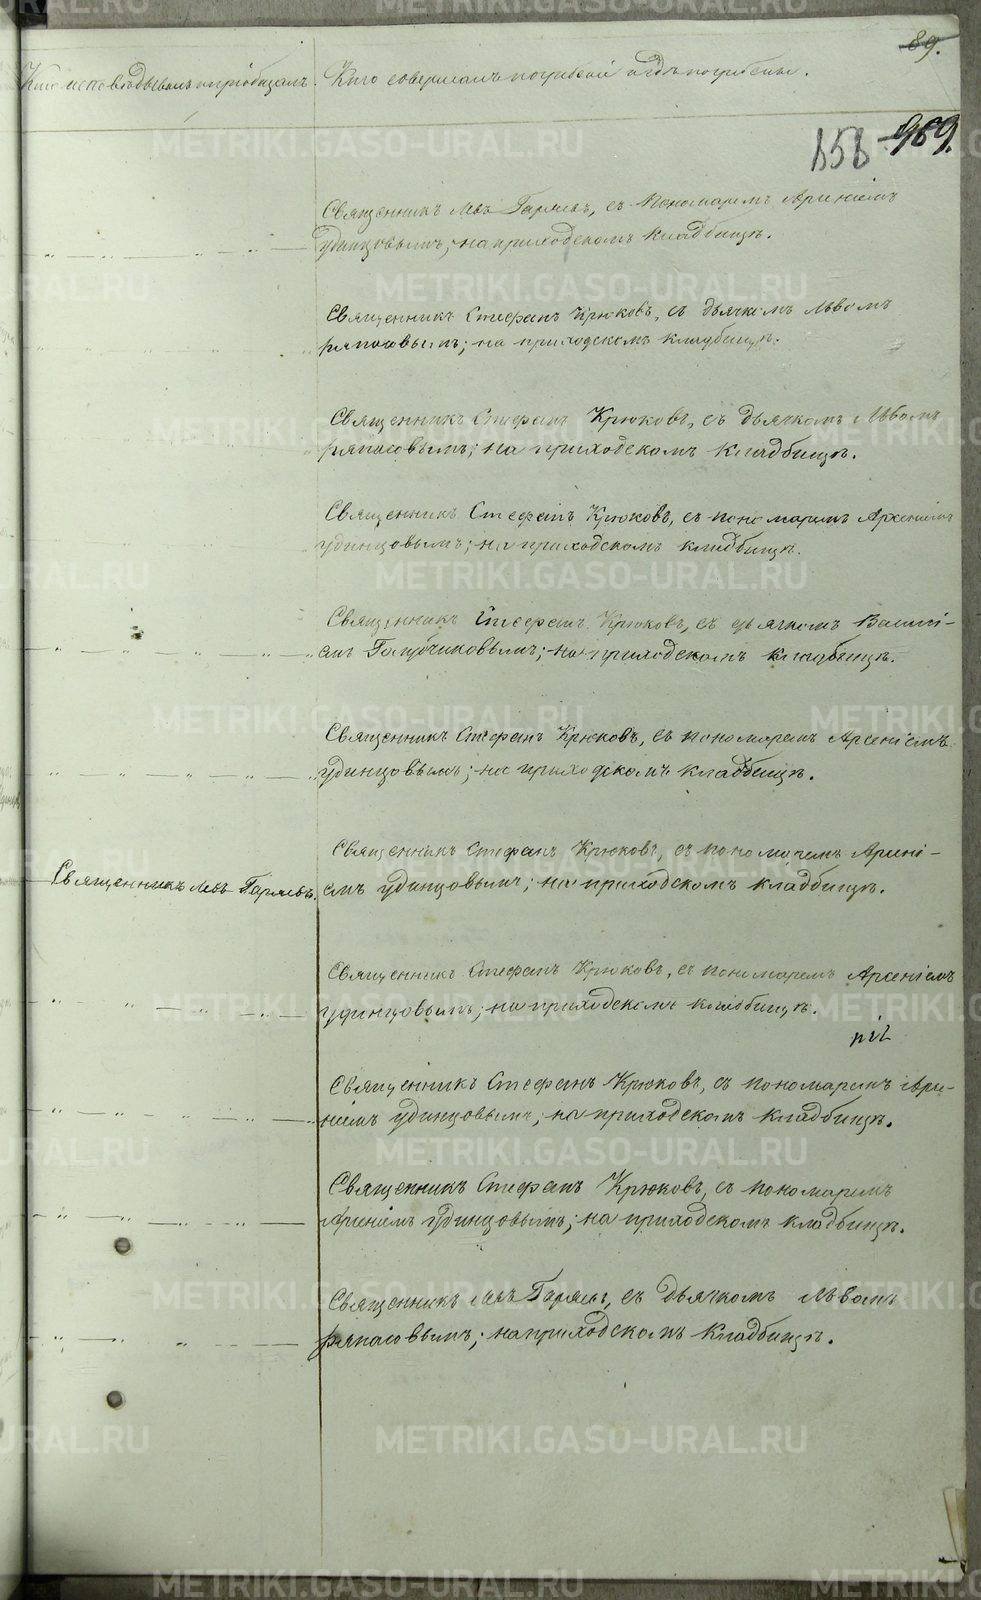 89.
Кто исповѣдывалъ и пріобщалъ. Кто совершалъ погребеніе и гдѣ погребены.
969.
858
Священникъ Левъ Гаряевъ, съ пономаремъ Арсеніемъ
Удинцовымъ; на приходскомъ кладбищѣ.
Священникъ Стефанъ Крюковъ, съ дьячкомъ Львомъ
Ряпасовымъ; на приходскомъ кладбищѣ.
Священникъ Стефанъ Крюковъ, съ дьячкомъ Львомъ
Ряпасовымъ; на приходскомъ кладбищѣ.
Священникъ Стефанъ Крюковъ, съ пономаремъ Арсеніемъ
Удинцовымъ; на приходскомъ кладбищѣ.
Священникъ Стефанъ Крюковъ, съ дьячкомъ Василі-
емъ на приходскомъ кладбищѣ.
Священникъ Стефанъ Крюковъ, съ пономаремъ Арсеніемъ
Удинцовымъ; на приходскомъ кладбищѣ.
Священникъ Стефанъ Крюковъ, съ пономаремъ Арсені-
Священникъ Левъ Гаряевъ. емъ Удинцовымъ; на приходскомъ кладбищѣ.
Священникъ Стефанъ Крюковъ, съ пономаремъ Арсеніемъ
Удинцовымъ; на приходскомъ кладбищѣ.
Священникъ Стефанъ Крюковъ, съ пономаремъ Арсе-
ніемъ Удинцовымъ; на приходскомъ кладбищѣ.
Священникъ Стефанъ Крюковъ, съ пономаремъ
Арсеніемъ Удинцовымъ; на приходскомъ кладбищѣ.
Священникъ Левъ Гаряевъ, съ дьячкомъ Львомъ
Ряпасовымъ; на приходскомъ кладбищѣ.